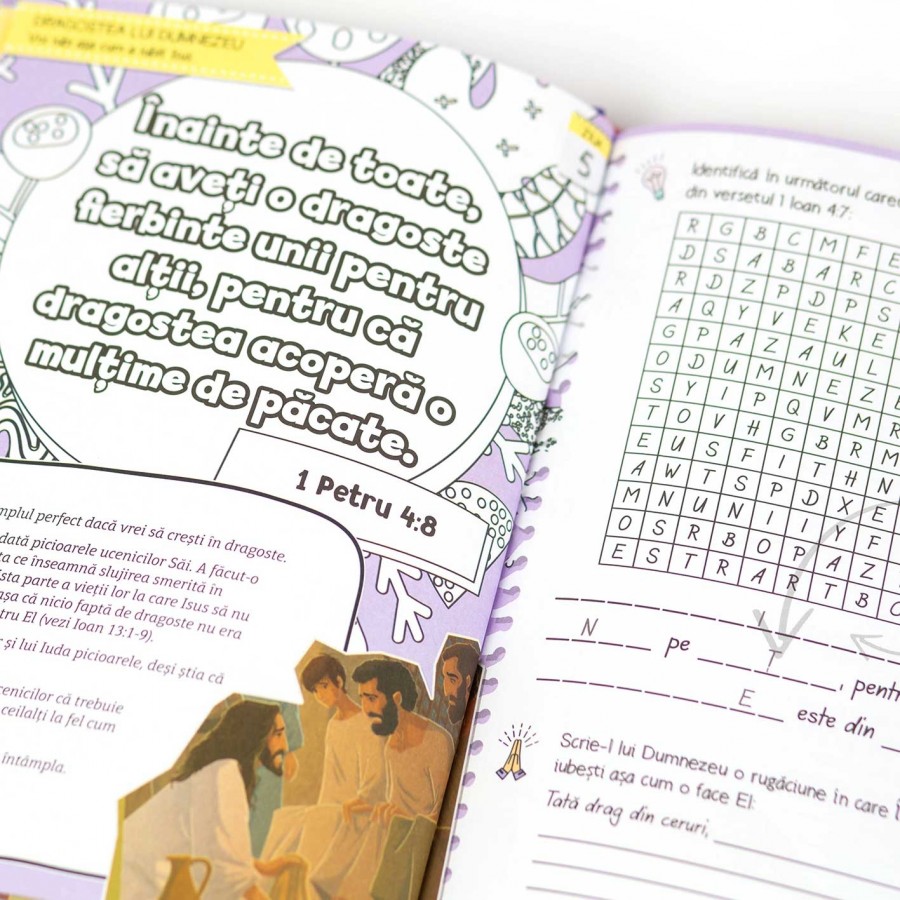 DRAGOSTEA LUI DUMNEZEU
Înainte de toate,
să aveți o dragoste
fierbinte unii pentru
alții, pentru că
dragostea acoperă o
mulțime de păcate.
1 Petru 4:8
perfect dacă vrei să crești în dragoste.
picioarele ucenicilor Săi. A făcut-o
ce înseamnă slujirea smerită în
parte a vieții lor la care Isus să nu
așa că nicio faptă de dragoste nu era
El (vezi Ioan 13:1-9).
și lui Iuda picioarele, deși știa că
că trebuie
ceilalți la fel cum
întâmpla.
ZIUA
5
Identifică în următorul
din versetul 1 Ioan 4:7:
R G B C M F E
D S A B A R C
R D Z P D P S
A Q Y V E K E
G P A Z A U L
O D U M N E Z E
S Y I P Q V M R
T O V H G B R M
E U S F I T H N
A W T S P D X E
M N U N I I Y F
O S R B O P A Z
E S T R A R T B O
N pe
I
E este din
Scrie-I lui Dumnezeu o rugăciune în care
iubești așa cum o face El:
Tată drag din ceruri,